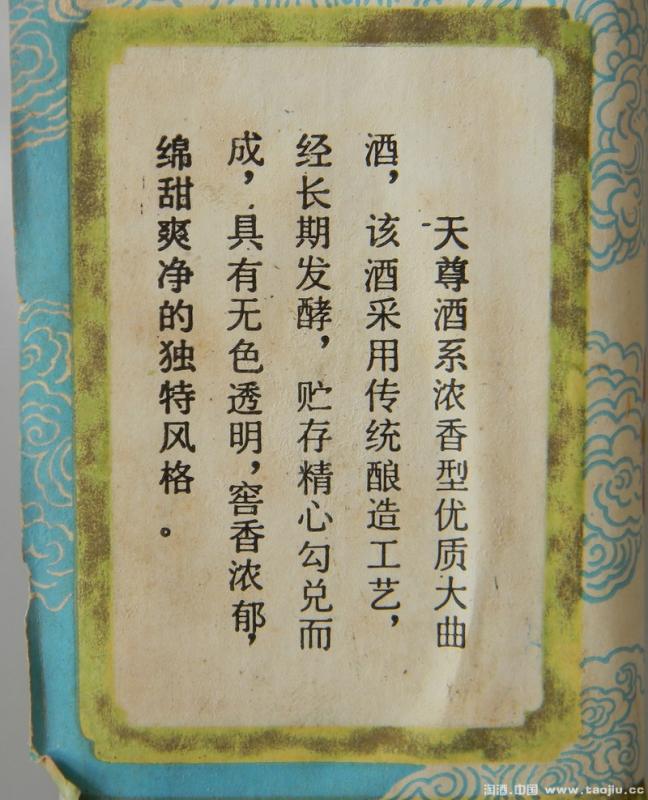 天尊酒系浓香型优质大曲
酒，该酒采用传统酿造工艺，
经长期发酵，贮存精心勾兑而
成，具有无色透明，窖香浓郁，
绵甜爽净的独特风格。
淘酒.中国 www.taojiu.cc